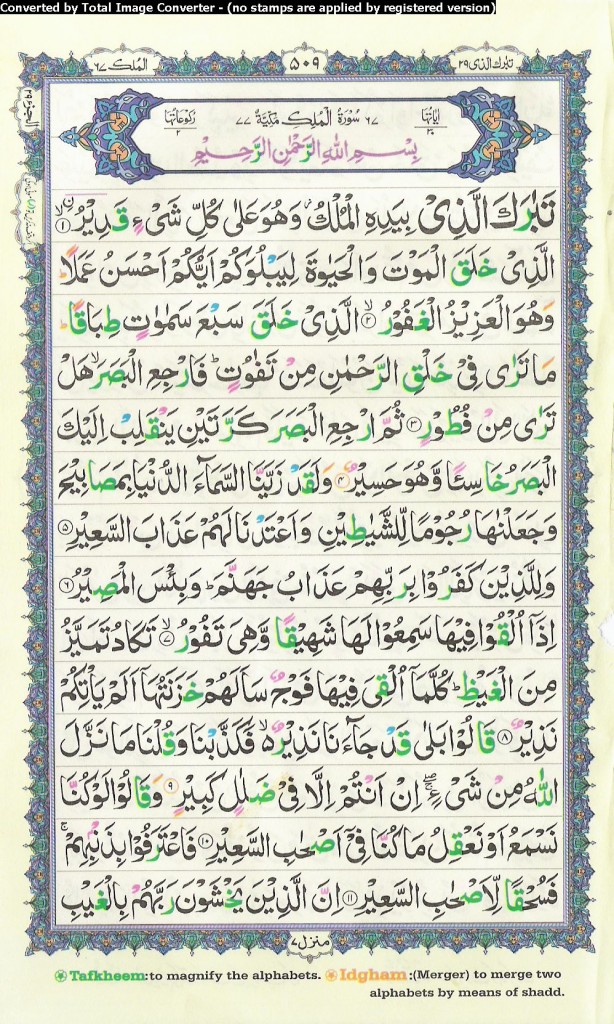 Converted by Total Image Converter - (no stamps are applied by registered version)
تبٰرك الذی ٢٩
٥٠٩
الملك ٦٧
الجزء ٢٩
اٰیاتها ٣٠
٦٧ سُوْرَةُ الْمُلْكِ مَكِّیَّةٌ ٧٧
رکوعاتها ٢
بِسْمِ اللّٰهِ الرَّحْمٰنِ الرَّحِیْمِ
تَبٰرَكَ الَّذِیْ بِیَدِهِ الْمُلْكُ ؗ وَهُوَ عَلٰى كُلِّ شَیْءٍ قَدِیْرُ ۙﹰ ۱
الَّذِیْ خَلَقَ الْمَوْتَ وَالْحَیٰوةَ لِیَبْلُوَكُمْ اَیُّكُمْ اَحْسَنُ عَمَلًا ؕ
وَهُوَ الْعَزِیْزُ الْغَفُوْرُ ۙ ۲ الَّذِیْ خَلَقَ سَبْعَ سَمٰوٰتٍ طِبَاقًا ؕ
مَا تَرٰى فِیْ خَلْقِ الرَّحْمٰنِ مِنْ تَفٰوُتٍ ؕ فَارْجِعِ الْبَصَرَ ۙ هَلْ
تَرٰى مِنْ فُطُوْرٍ ۳ ثُمَّ ارْجِعِ الْبَصَرَ كَرَّتَیْنِ یَنْقَلِبْ اِلَیْكَ
الْبَصَرُ خَاسِئًا وَّهُوَ حَسِیْرٌ ۴ وَلَقَدْ زَیَّنَّا السَّمَآءَ الدُّنْیَا بِمَصَابِیْحَ
وَجَعَلْنٰهَا رُجُوْمًا لِّلشَّیٰطِیْنِ وَاَعْتَدْنَا لَهُمْ عَذَابَ السَّعِیْرِ ۵
وَلِلَّذِیْنَ كَفَرُوْا بِرَبِّهِمْ عَذَابُ جَهَنَّمَ ؕ وَبِئْسَ الْمَصِیْرُ ۶
اِذَاۤ اُلْقُوْا فِیْهَا سَمِعُوْا لَهَا شَهِیْقًا وَّهِیَ تَفُوْرُ ۙ ۷ تَكَادُ تَمَیَّزُ
مِنَ الْغَیْظِ ؕ كُلَّمَاۤ اُلْقِیَ فِیْهَا فَوْجٌ سَاَلَهُمْ خَزَنَتُهَاۤ اَلَمْ یَاْتِكُمْ
نَذِیْرٌ ۸ قَالُوْا بَلٰى قَدْ جَآءَنَا نَذِیْرٌ ۙ۬ فَكَذَّبْنَا وَقُلْنَا مَا نَزَّلَ
اللّٰهُ مِنْ شَیْءٍ ۖۚ اِنْ اَنْتُمْ اِلَّا فِیْ ضَلٰلٍ كَبِیْرٍ ۹ وَقَالُوْا لَوْ كُنَّا
نَسْمَعُ اَوْ نَعْقِلُ مَا كُنَّا فِیْۤ اَصْحٰبِ السَّعِیْرِ ۱۰ فَاعْتَرَفُوْا بِذَنْۢبِهِمْ ۚ
فَسُحْقًا لِّاَصْحٰبِ السَّعِیْرِ ۱۱ اِنَّ الَّذِیْنَ یَخْشَوْنَ رَبَّهُمْ بِالْغَیْبِ
منزل ٧
Tafkheem:to magnify the alphabets. Idgham:(Merger) to merge two
alphabets by means of shadd.